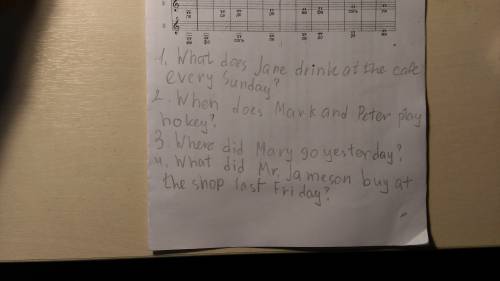 1. What does Jane drink at the cafe
every Sunday?
2. When does Mark and Peter play
hokey?
3. Where did Mary go yesterday?
4. What did Mr. Jameson buy at
the shop last Friday?